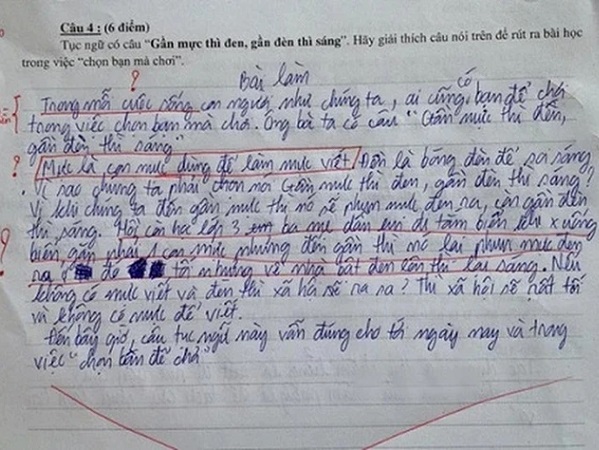 Câu 4 : (6 điểm)
Tục ngữ có câu “Gần mực thì đen, gần đèn thì sáng”. Hãy giải thích câu nói trên để rút ra bài học
trong việc “chọn bạn mà chơi”.
?
Bài làm
có
Trong mỗi cuộc sống con người như chúng ta, ai cũng bạn để chơi
trong việc chọn bạn mà chơi. Ông bà ta có câu “Gần mực thì đen,
gần đèn thì sáng”
? Mực là con mực dùng để làm mực viết. Đèn là bóng đèn để soi sáng.
Vì sao chúng ta phải chọn nói Gần mực thì đen, gần đèn thì sáng?
Vì khi chúng ta đến gần mực thì nó sẽ phun mực đen ra, còn gần đèn
thì sáng. Hồi còn học lớp 3, em ba mẹ dẫn em đi tắm biển khi xuống
? biển, gần phải 1 con mực nhưng đến gần thì nó lại phun mực đen
ra, để tối nhưng về nhà bật đèn lên thì lại sáng. Nếu
không có mực viết và đèn thì xã hội sẽ ra ra? Thì xã hội sẽ rất tối
và không có mực để viết.
Đến bây giờ, câu tục ngữ này vẫn đúng cho tới ngày nay và trong
việc “chọn bạn để chơi”